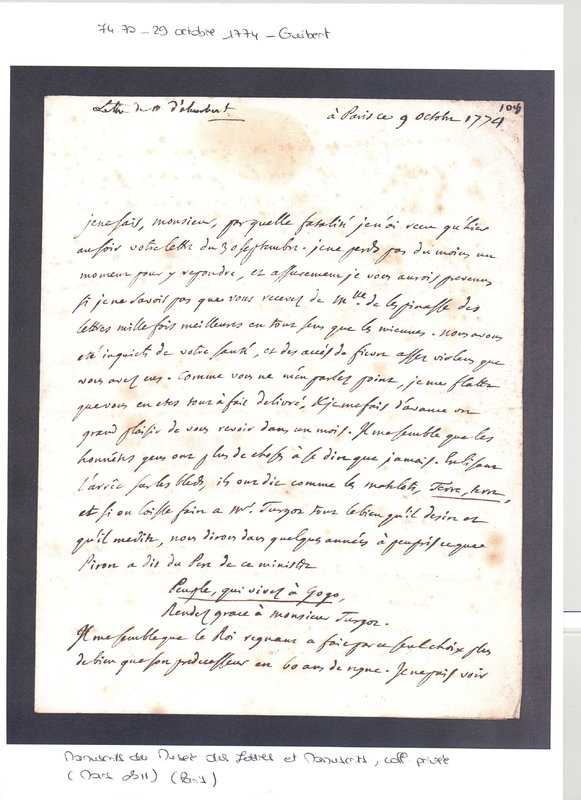 74.70 - 29 octobre 1774 - Guibert
108
Lettre de Mr d'Alembert
à Paris ce 9 octobre 1774
je ne sais, monsieur, par quelle fatalité je n'ai reçu qu'hier
au soir votre lettre du 30 septembre. je ne perds pas du moins un
moment pour y repondre, et assurement je vous aurois prevenu
si je ne savois pas que vous recevez de Mlle de Lespinasse des
lettres mille fois meilleures en tout sens que les miennes. nous avons
eté inquiets de votre santé, et des accés de fievre assez violens que
vous avez eus. Comme vous ne m'en parlez point, je me flatte
que vous en etes tout à fait delivré, & je me fais d'avance un
grand plaisir de vous revoir dans un mois. Il me semble que les
honnêtes gens ont plus de choses à se dire que jamais. En lisant
l'arrêt sur les bleds, ils ont dit comme les matelots, Terre, terre,
et si on laisse faire à Mr. Turgot tout le bien qu'il desire et
qu'il medite, nous dirons dans quelques années à peu près ce que
Piron a dit du Pere de ce ministre
Peuple, qui vivez à Gogo,
Rendez grace à monsieur Turgot.
Il me semble que le Roi regnant a fait par ce seul choix plus
de bien que son predecesseur en 60 ans de regne. Je ne puis voir
Manuscrits du Musée des Lettres et Manuscrits, coll. privée
(Mars 2011) (Paris)